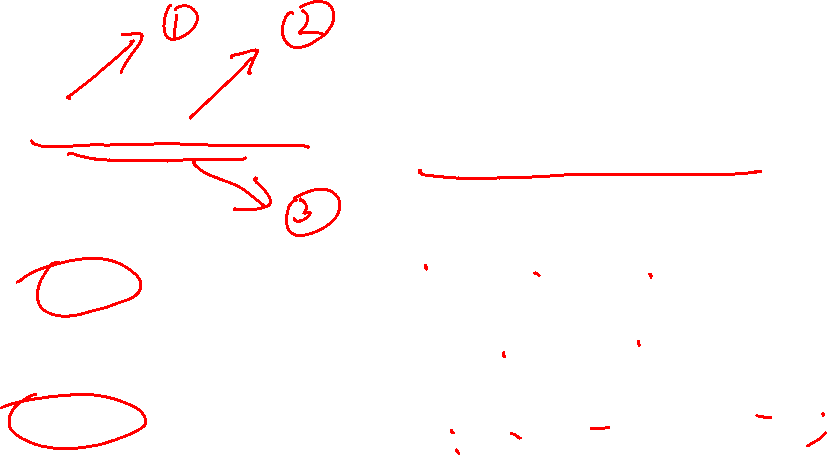 ① ②
③